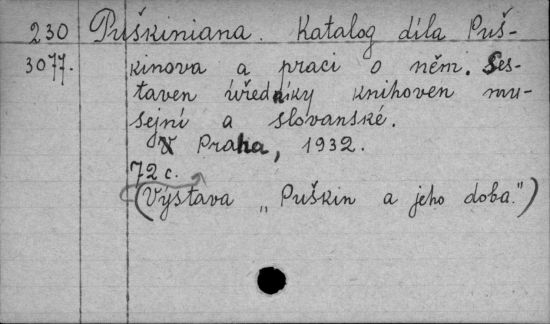 230 Puškiniana. Katalog díla Puš-
3077. kinova a praci o něm. Ses-
taven úředníky knihoven mu-
sejní a slovanské.
V Praha, 1932.
72 c.
(Výstava „Puškin a jeho doba.")